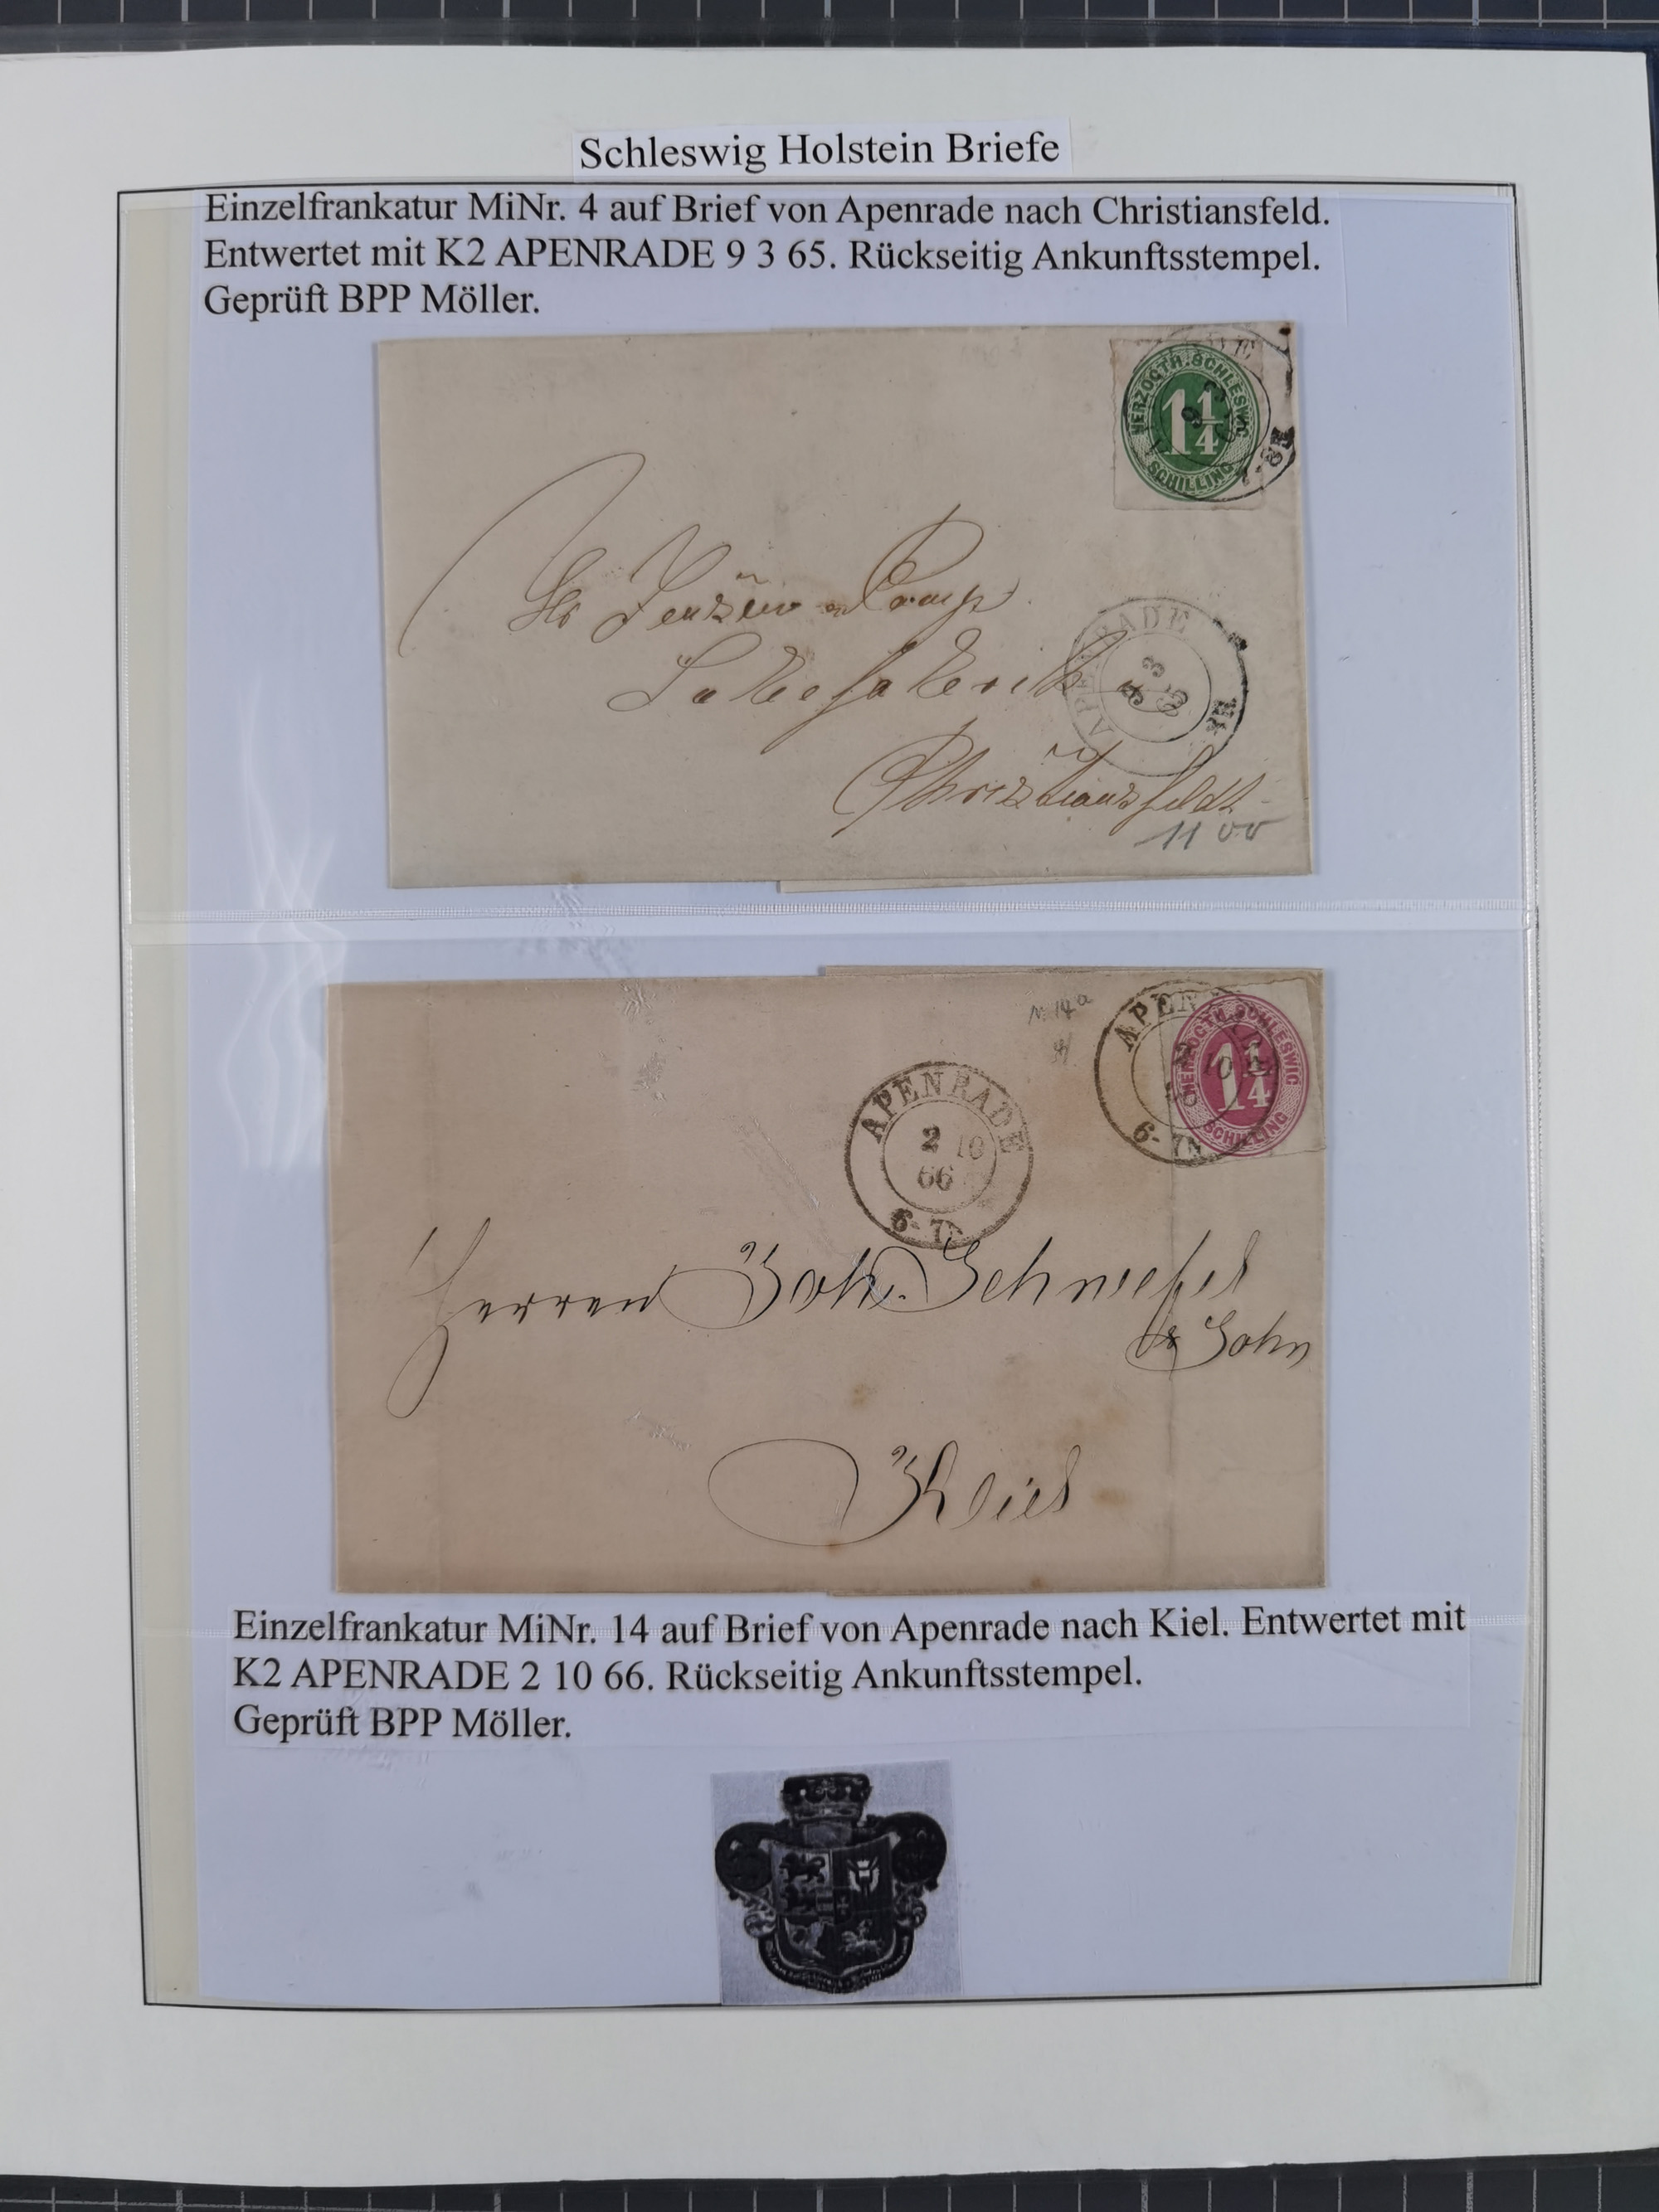 Schleswig Holstein Briefe
Einzelfrankatur MiNr. 4 auf Brief von Apenrade nach Christiansfeld.
Entwertet mit K2 APENRADE 9 3 65. Rückseitig Ankunftsstempel.
Geprüft BPP Möller.
HERZOGTH. SCHLESWIG
1 1/4
SCHILLING
Comp
APENRADE
3
65
Christiansfeldt
11 00
N 14a
APEN
HERZOGTH. SCHLESWIG
1 1/4
SCHILLING
2 10
6-7N
APENRADE
2 10
66
6-7N
Herren Joh. Schwefel
& Sohn
Kiel
Einzelfrankatur MiNr. 14 auf Brief von Apenrade nach Kiel. Entwertet mit
K2 APENRADE 2 10 66. Rückseitig Ankunftsstempel.
Geprüft BPP Möller.